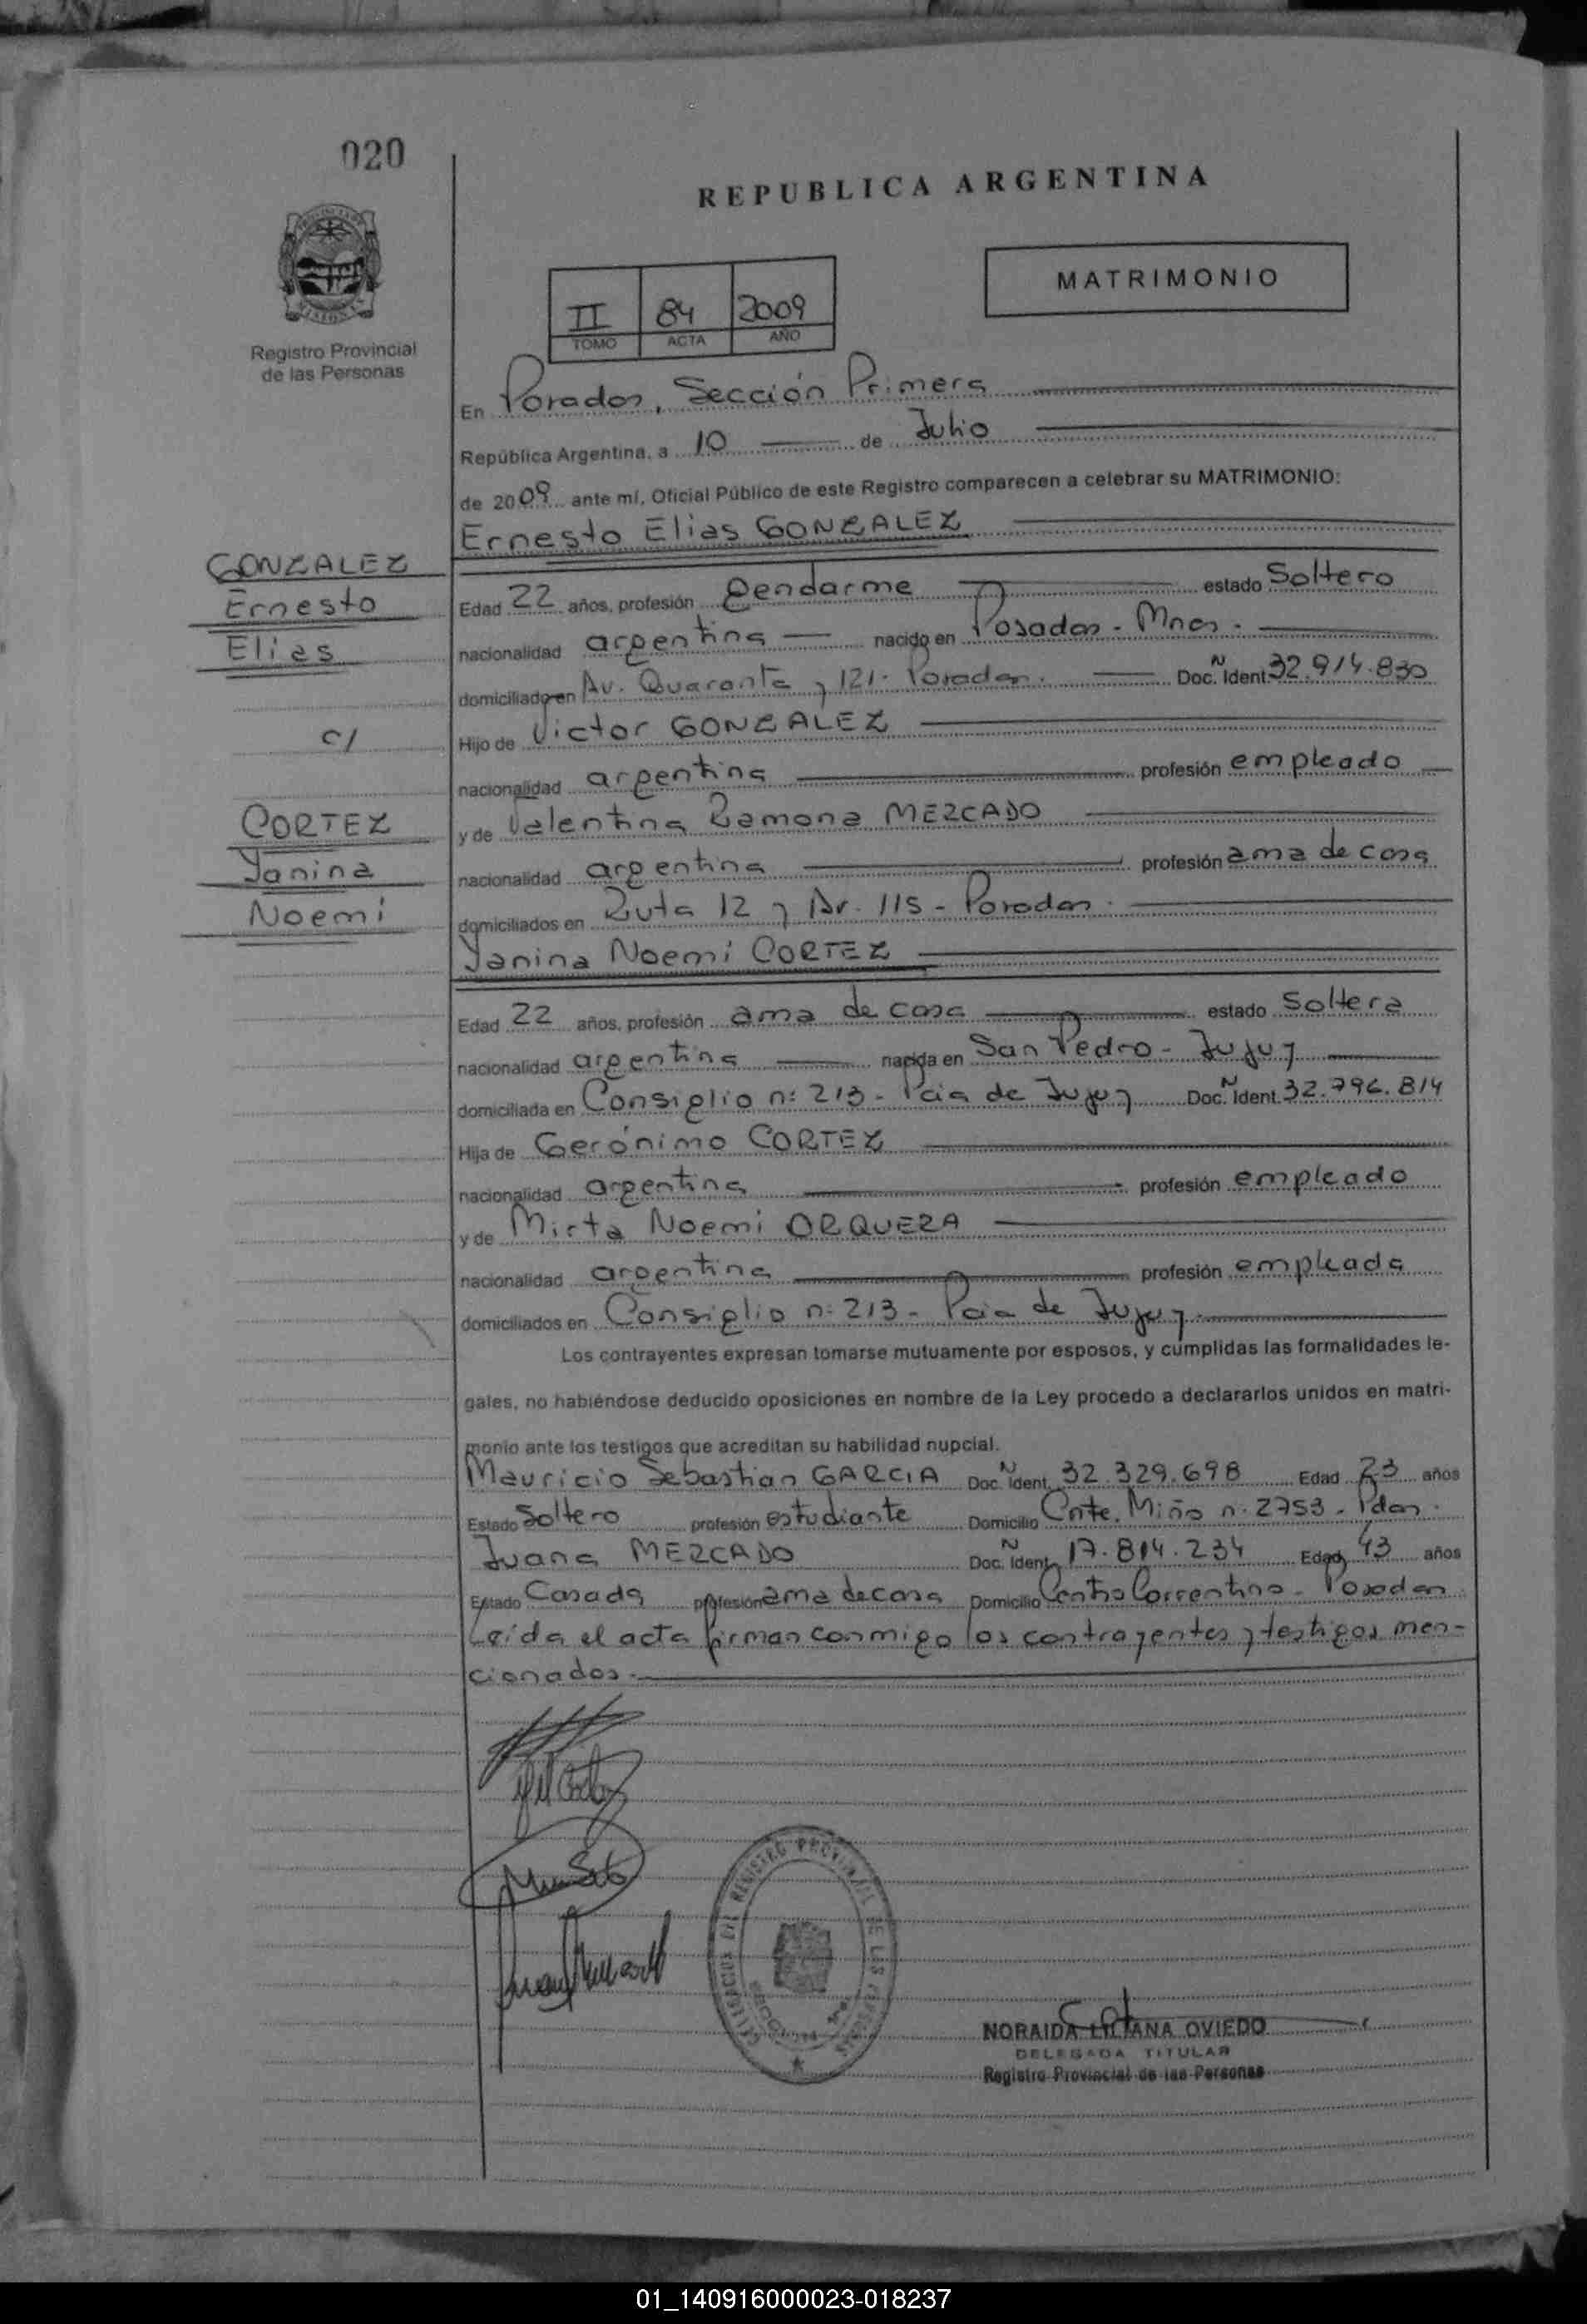 020
REPUBLICA ARGENTINA
MATRIMONIO
Registro Provincial
de las Personas
II 84 2009
TOMO ACTA AÑO
En Posadas, Sección Primera
República Argentina, a 10 de Julio
de 2009 ante mí, Oficial Público de este Registro comparecen a celebrar su MATRIMONIO:
Ernesto Elias GONZALEZ
GONZALEZ
Ernesto
Elias
c/
CORTEZ
Yanina
Noemí
Edad 22 años, profesión Gendarme estado Soltero
nacionalidad argentina nacido en Posadas - Mnes.
domiciliado en Av. Quaranta y 121. Posadas. Doc. Nº Ident. 32.914.830
Hijo de Victor GONZALEZ
nacionalidad argentina profesión empleado
y de Valentina Ramona MERCADO
nacionalidad argentina profesión ama de casa
domiciliados en Ruta 12 y Av. 115 - Posadas.
Yanina Noemí CORTEZ
Edad 22 años, profesión ama de casa estado Soltera
nacionalidad argentina nacida en San Pedro - Jujuy
domiciliada en Consiglio n: 213 - Pcia de Jujuy Doc. N Ident. 32.796.814
Hija de Gerónimo CORTEZ
nacionalidad argentina profesión empleado
y de Mirta Noemi ORQUERA
nacionalidad argentina profesión empleada
domiciliados en Consiglio n: 213 - Pcia de Jujuy.
Los contrayentes expresan tomarse mutuamente por esposos, y cumplidas las formalidades le-
gales, no habiéndose deducido oposiciones en nombre de la Ley procedo a declararlos unidos en matri-
monio ante los testigos que acreditan su habilidad nupcial.
Mauricio Sebastian GARCIA Doc. N Ident. 32.329.698 Edad 23 años
Estado Soltero profesión estudiante Domicilio Cnte. Miño n. 2753 - Pdas.
Juana MERCADO Doc. N Ident. 17.814.234 Edad 43 años
Estado Casada profesión ama de casa Domicilio Centro Correntino - Posadas
Leída el acta firman conmigo los contrayentes y testigos men-
cionados.
REGISTRO PROVINCIAL DE LAS PERSONAS
NORAIDA LILIANA OVIEDO
DELEGADA TITULAR
Registro Provincial de las Personas
01_140916000023-018237